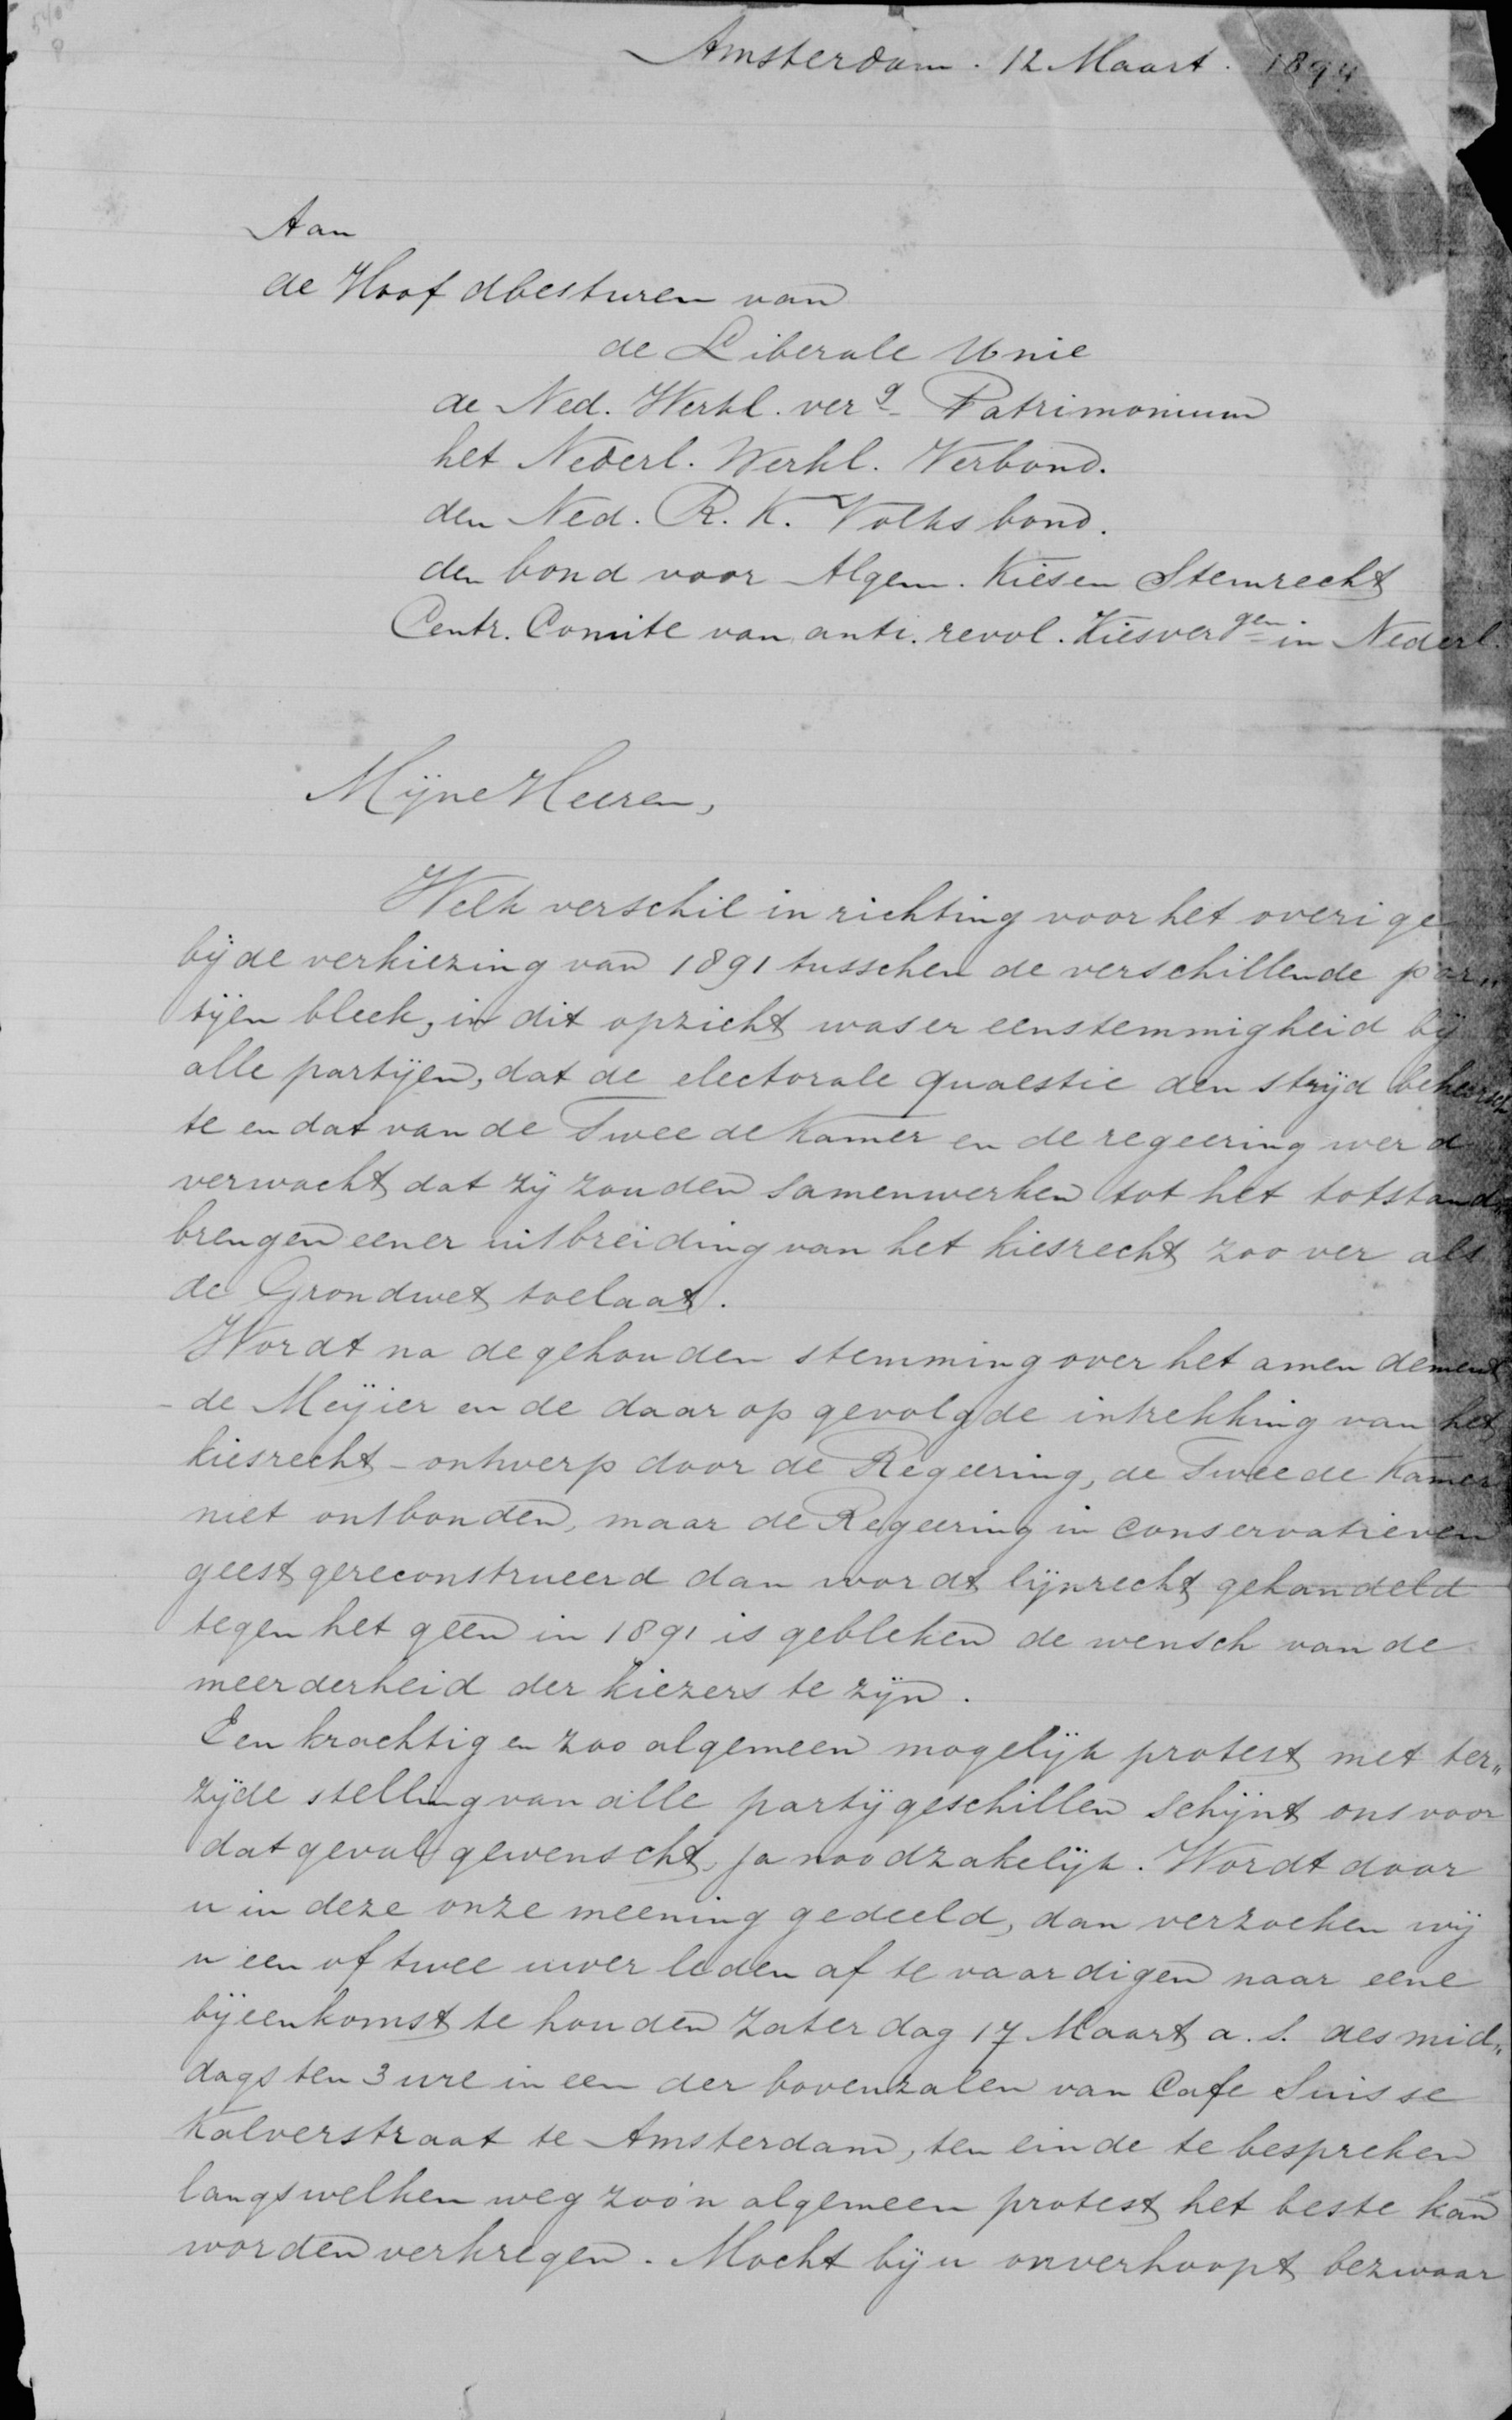 Amsterdam. 12 Maart. 1894
Aan
de Hoofdbesturen van
de Liberale Unie
de Ned. Werkl. verg. Patrimonium
het Nederl. Werkl. Verbond.
den Ned. R. K. Volksbond.
den bond voor Algem. Kies en Stemrecht
Centr. Comite van anti. revol. Kiesvergen in Nederl.
Mijne Heeren,
Welk verschil in richting voor het overige
bij de verkiezing van 1891 tusschen de verschillende par„
tijen bleek, in dit opzicht was er eenstemmigheid bij
alle partijen, dat de electorale quaestie den strijd beheersch
te en dat van de Tweede Kamer en de regeering werd
verwacht dat zij zouden samenwerken tot het totstand„
brengen eener uitbreiding van het kiesrecht zoo ver als
de Grondwet toelaat.
Wordt na de gehouden stemming over het amendement
- de Meijier en de daarop gevolgde intrekking van het
kiesrecht-ontwerp door de Regeering, de Tweede Kamer
niet ontbonden, maar de Regeering in conservatieven
geest gereconstrueerd dan wordt lijnrecht gehandeld
tegen het geen in 1891 is gebleken de wensch van de
meerderheid der kiezers te zijn.
Een krachtig en zoo algemeen mogelijk protest met ter„
zijde stelling van alle partijgeschillen schijnt ons voor
dat geval gewenscht, ja noodzakelijk. Wordt door
u in deze onze meening gedeeld, dan verzoeken wij
u een of twee uwer leden af te vaardigen naar eene
bijeenkomst te houden Zaterdag 17 Maart a. s. des mid„
dags ten 3 ure in een der bovenzalen van Cafe Suisse
Kalverstraat te Amsterdam, ten einde te bespreken
langs welken weg zoo'n algemeen protest het beste kan
worden verkregen. Mocht bij u onverhoopt bezwaar